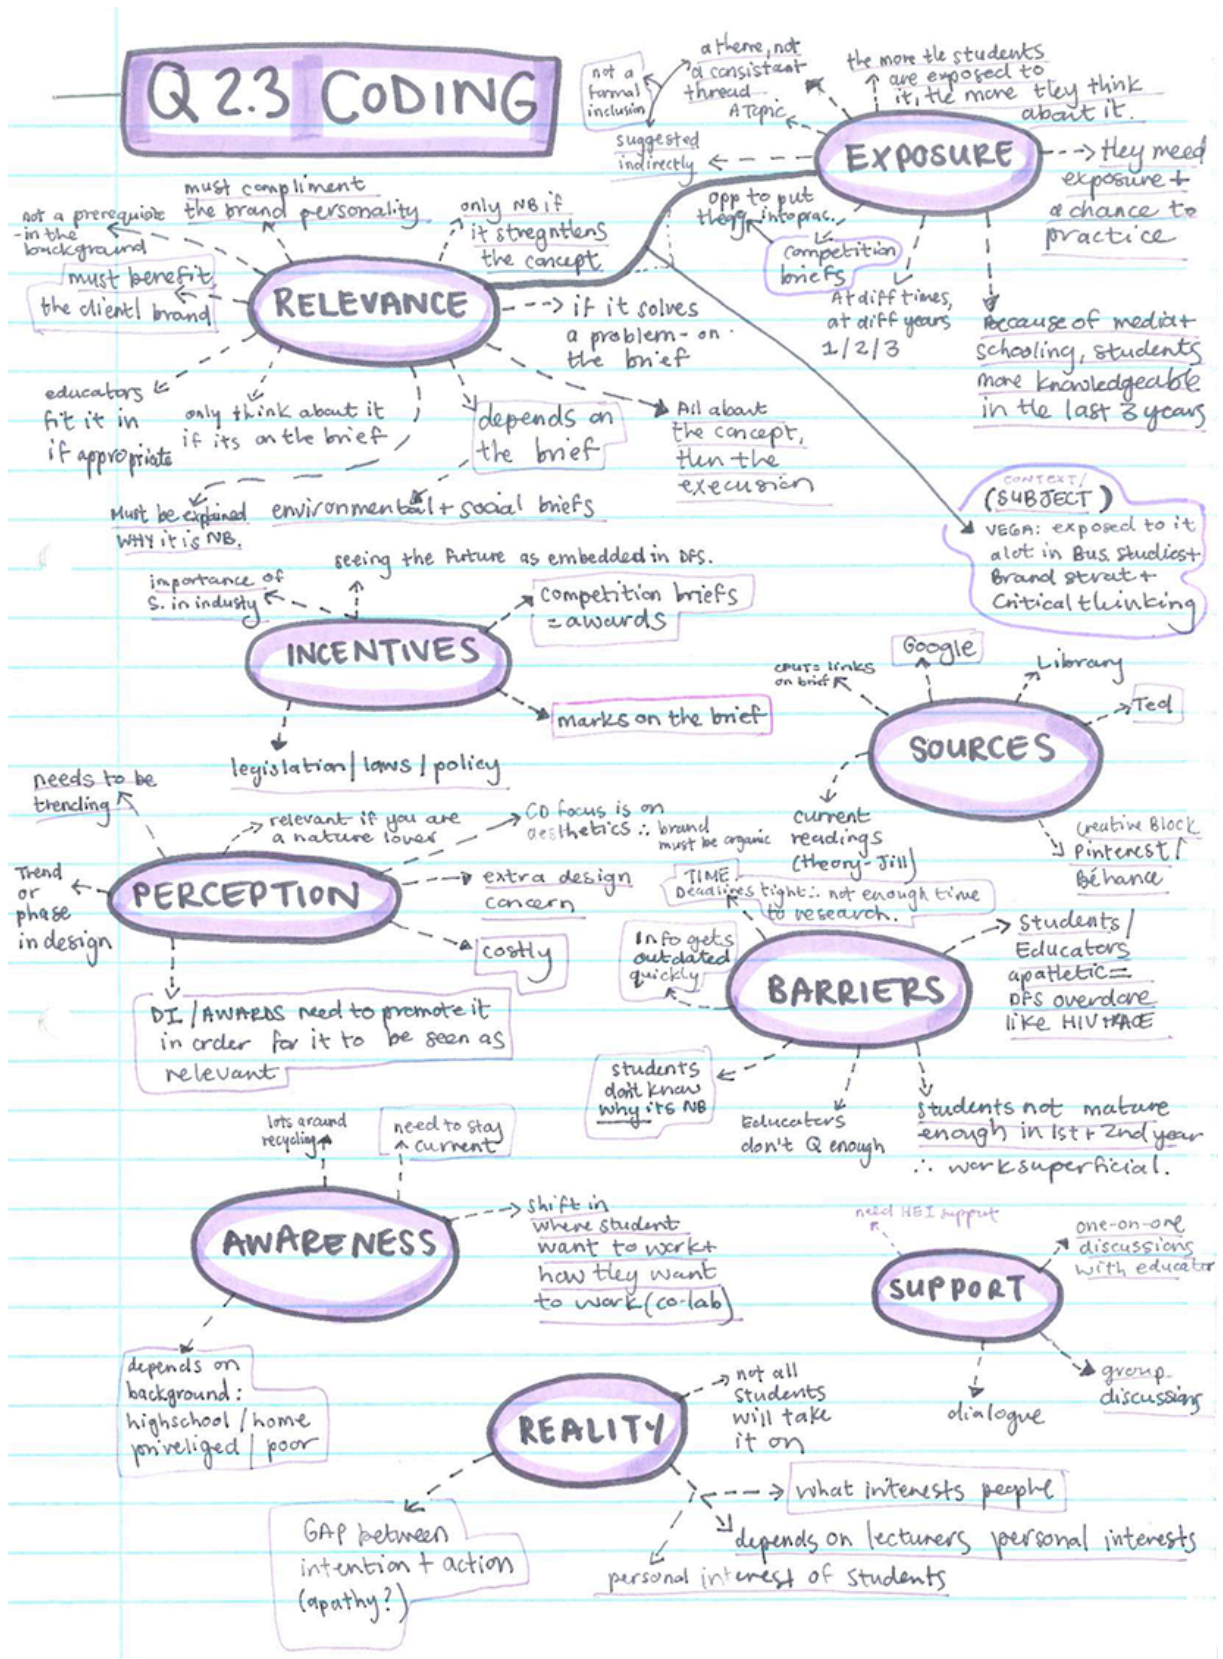 Q 2.3 CODING
EXPOSURE
not a
formal
inclusion
a theme, not
a consistant
thread
A Topic
suggested
indirectly
the more the students
are exposed to
it, the more they think
about it.
they need
exposure +
a chance to
practice
opp to put
into prac.
competition
briefs
At diff times,
at diff years
1/2/3
Because of media +
schooling, students
more knowledgeable
in the last 3 years
RELEVANCE
not a prerequisite
- in the
background
must compliment
the brand personality
only NB if
it stregntlens
the concept
must benefit
the client brand
if it solves
a problem - on
the brief
educators
fit it in
if appropriate
only think about it
if its on the brief
depends on
the brief
All about
the concept,
then the
execusion
Must be explained
WHY it is NB.
environmental + social briefs
CONTEXT/
(SUBJECT)
VEGA: exposed to it
alot in Bus. Studies +
Brand strat +
Critical thinking
INCENTIVES
importance of
S. in industy
seeing the future as embedded in DFS.
competition briefs
= awards
marks on the brief
legislation / laws / policy
SOURCES
CPUT = links
on brief
Google
Library
Ted
current
readings
(theory - Jill)
Creative Block
Pinterest /
Béhance
PERCEPTION
needs to be
trending
relevant if you are
a nature lover
CD focus is on
aesthetics ∴ brand
must be organic
Trend
or
phase
in design
extra design
concern
costly
DI / AWARDS need to promote it
in order for it to be seen as
relevant
BARRIERS
TIME
Deadlines tight ∴ not enough time
to research.
Info gets
outdated
quickly
Students /
Educators
apathetic =
DFS overdone
like HIV + RACE
students
don't know
why its NB
Educators
don't Q enough
Students not mature
enough in 1st + 2nd year
∴ work superficial.
AWARENESS
lots around
recycling
need to stay
current
shift in
where student
want to work +
how they want
to work (co-lab)
depends on
background:
highschool / home
priveliged / poor
SUPPORT
need HEI support
one-on-one
discussions
with educator
dialogue
group
discussions
REALITY
not all
students
will take
it on
what interests people
depends on lecturers personal interests
personal interest of students
GAP between
intention + action
(apathy?)